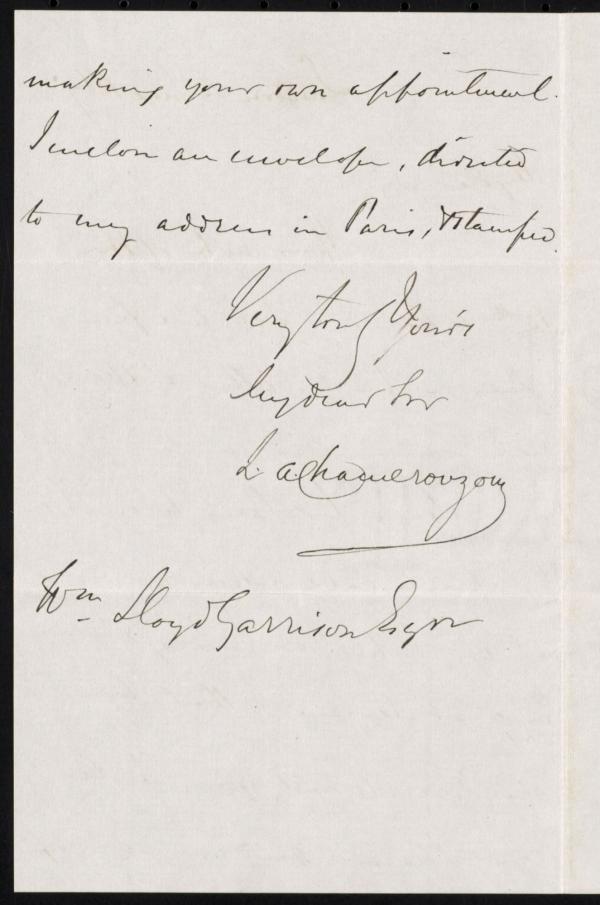 making your own appointment.
I enclose an envelope, directed
to my address in Paris, & stamped.
Very truly Yours
My dear Sir
L. A. Chamerovzow
Wm Lloyd Garrison Esqre